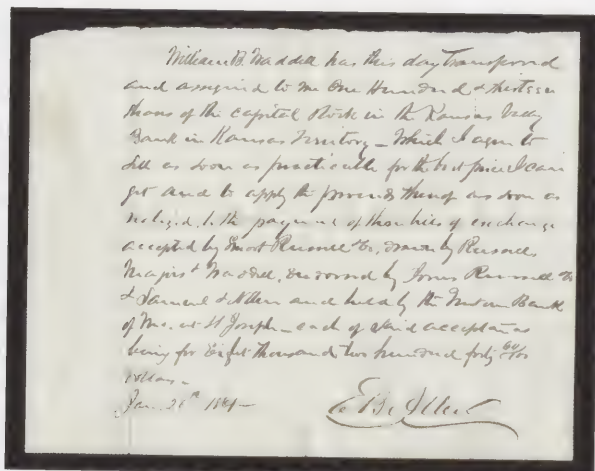 William B. Waddell has this day transferred
and assigned to me One Hundred & thirteen
shares of the capital stock in the Kansas Valley
Bank in Kansas Territory – which I agree to
sell as soon as practicable for the best price I can
get and to apply the proceeds thereof as soon as
realized, to the payment of three bills of exchange
accepted by Smoot Russell & Co, drawn by Russell
Majors & Waddell, endorsed by Jones Russell & Co
& Samuel & Allen and held by the Bank
of Mo. at St Joseph – each of said acceptances
being for Eight thousand two hundred forty 60/100
dollars –
Jany 28th 1861 –